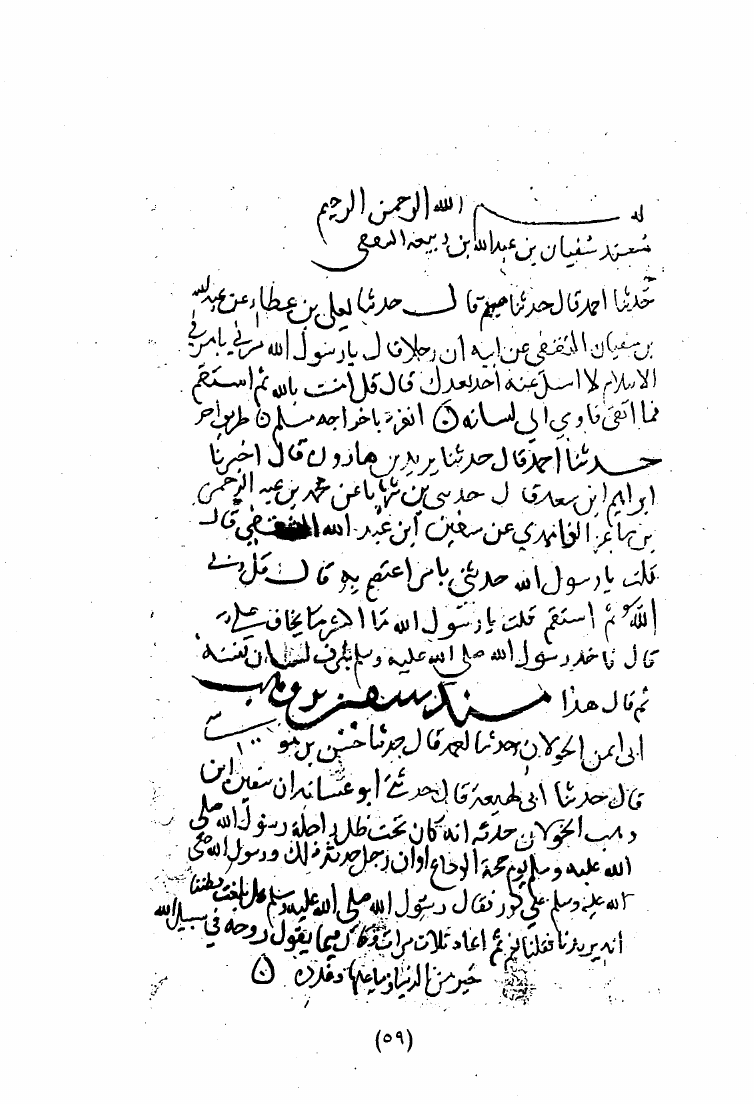 بسم الله الرحمن الرحيم
مسند سفيان بن عبدالله بن ربيعة الثقفي
حدثنا احمد قال حدثنا هشيم قال حدثنا يعلى بن عطاء عن عبدالله
بن سفيان الثقفي عن ابيه ان رجلا قال يا رسول الله مرني بامر في
الاسلام لا اسل عنه احد بعدك قال قل امنت بالله ثم استقم
فما اتقي فاومي الى لسانه انفرد باخراجه مسلم طريق اخر
حدثنا احمد قال حدثنا يزيد بن هارون قال اخبرنا
ابراهيم ابن سعد قال حدثني بن شهاب عن محمد بن عبد الرحمن
بن ماعز الغامدي عن سفين ابن عبد الله الثقفي قال
قلت يا رسول الله حدثني بامر اعتصم به قال قل ربي
الله ثم استقم قلت يا رسول الله ما اكثر ما تخاف علي
قال فاخذ رسول الله صلى الله عليه وسلم بطرف لسان نفسه
ثم قال هذا مسند سفين بن وهب
ابي ايمن الخولاني حدثنا احمد قال حدثنا حسن بن مو
قال حدثنا ابن لهيعة قال حدثني ابو عشانه ان سفين ابن
وهب الخولاني حدثه انه كان تحت ظل راحلة رسول الله صلى
الله عليه وسلم يوم حجة الوداع او ان رجل حدثه ذلك ورسول الله صلى
الله عليه وسلم على كور فقال رسول الله صلى الله عليه وسلم هل بلغت فظننا
انه يريدنا فقلنا نعم ثم اعاد ثلاث مرات وقال فيما يقول روحة في سبيل الله
خير من الدنيا وما عليها وغدوة
(٥٩)